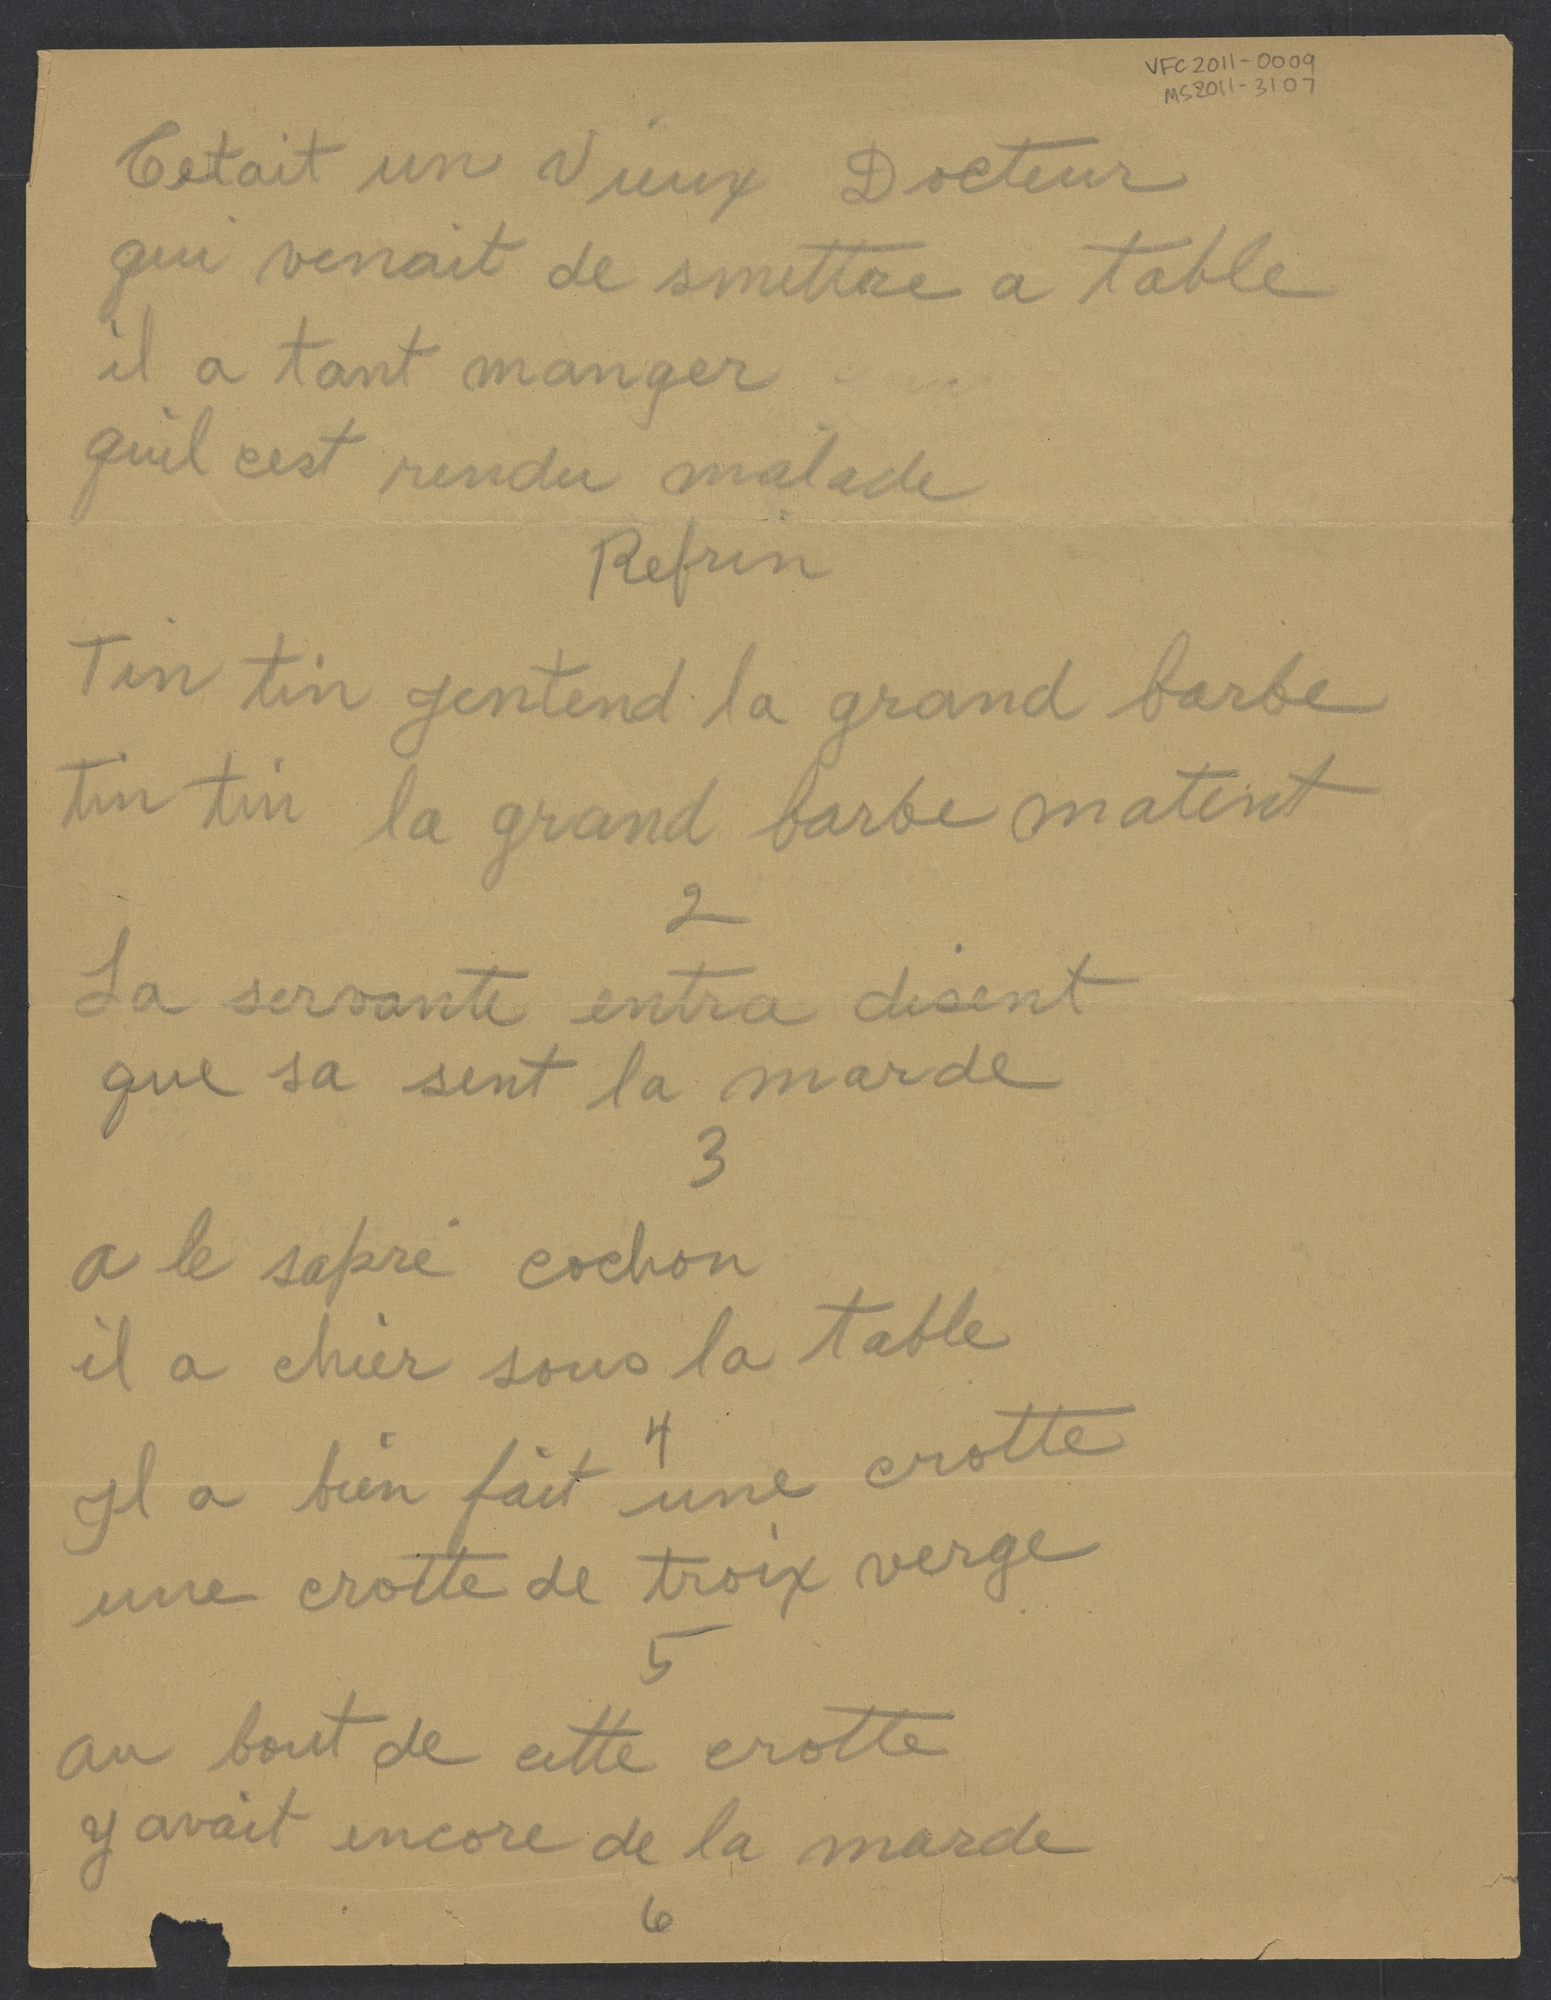 VFC2011-0009
MS2011-3107
Cetait un Vieux Docteur
qui venait de smettre a table
il a tant manger
quil cest rendu malade
Refrin
Tin tin jentend la grand barbe
tin tin la grand barbe matint
2
La servante entra disent
que sa sent la marde
3
a le sapré cochon
il a chier sous la table
4
Il a bien fait une crotte
une crotte de troix verge
5
au bout de cette crotte
y avait encore de la marde
6